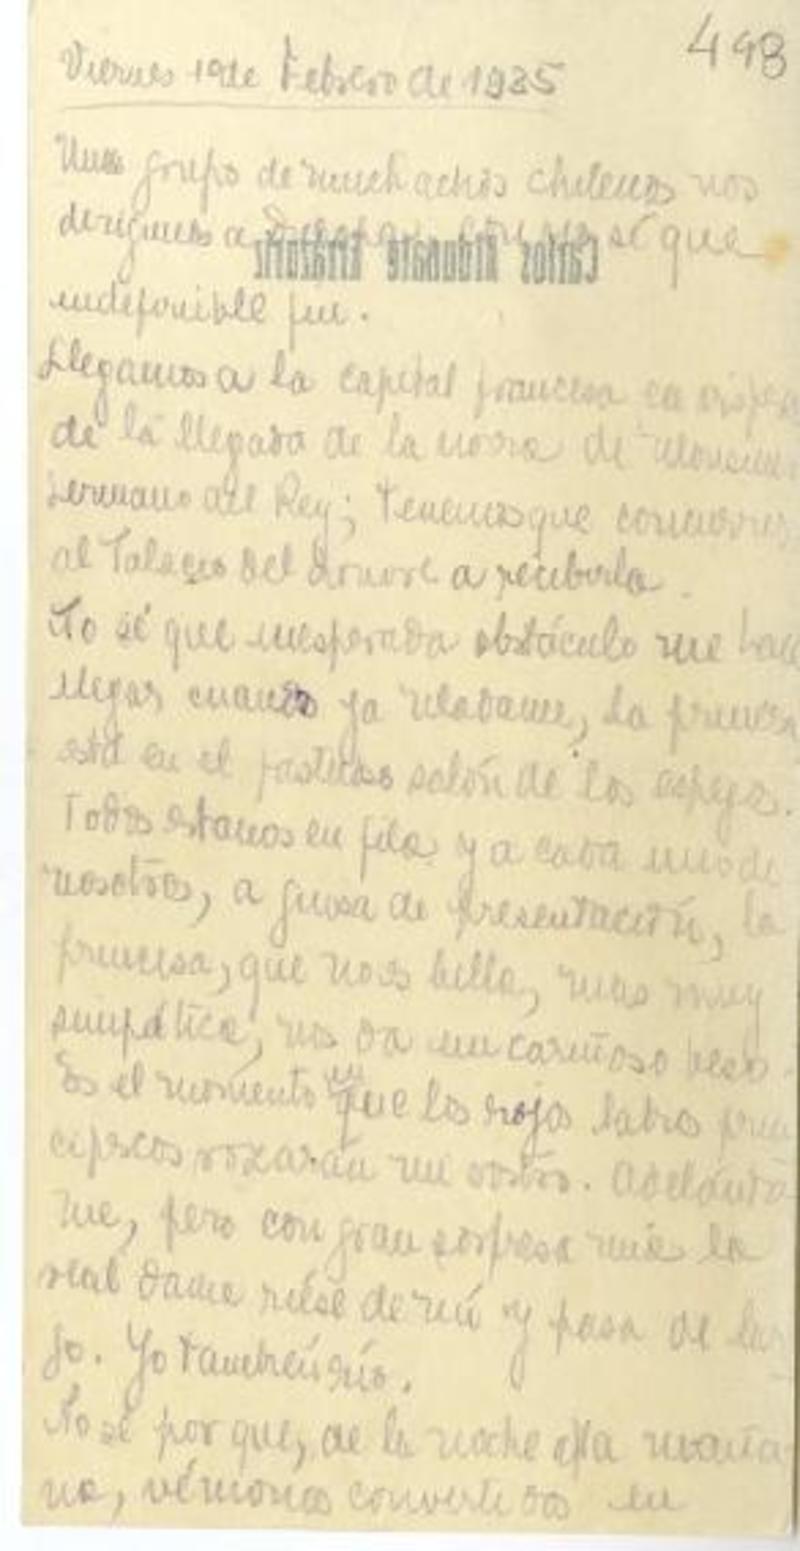 498
Viernes 1º de Febrero de 1935
Un grupo de muchachos chilenos nos
dirigimos a con no sé que
indefinible fin.
Llegamos a la capital francesa en
de la llegada de la novia de
hermano del Rey; tenemos que
al Palacio del a recibirla.
No sé que inesperado obstáculo me hace
llegar cuando ya Madame, la princesa
está en el fastuoso salón de los espejos.
Todos estamos en fila y a cada uno de
nosotros, a guisa de presentación, la
princesa, que no es bella, mas muy
simpática, nos da un cariñoso beso.
Es el momento en que los rojos labios prin
cipescos rozarán mi rostro. Adelánto
me, pero con gran sorpresa mía la
real dama ríese de mí y pasa de lar
go. Yo también río.
No sé por que, de la noche a la maña
na, vémonos convertidos en
Carlos Aldunate Errázuriz